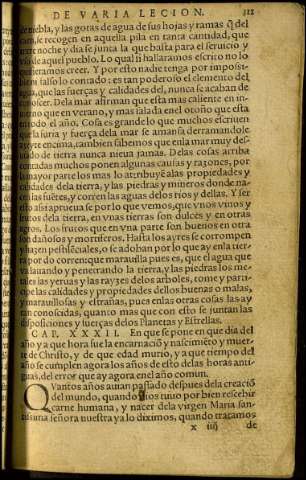 DE VARIA LECION. 312
de niebla, y las gotas de agua de sus hojas y ramas q̃ del
caen, se recogen en aquella pila en tanta cantidad, que
entre noche y dia se junta lo que basta para el seruicio y
vso de aquel pueblo. Lo qual si hallaramos escrito no lo
quisieramos creer. Y por esto nadie tenga por imposte
bien falso lo contado: es tan poderoso el elemento del
agua, que las fuerças y calidades del, nunca se acaban de
conocer. Dela mar afirman que esta mas caliente en in-
uierno que en verano, y mas salada enel otoño que esta
en todo el año. Cosa es grande lo que muchos escriuen
que la furia y fuerça dela mar se amansa derramandole
azeyte encima, tambien sabemos que enla mar muy des-
uiado de tierra nunca nieua jamas. Delas cosas arriba
contadas muchos ponen algunas causas y razones, por
la mayor parte los mas lo atribuyẽ alas propiedades y
calidades dela tierra, y las piedras y mineros donde na-
cen las fuẽtes, y corren las aguas delos rios y dellas. Y ser
esto assi aprueua se por lo que vemos, que vnos vinos y
frutos dela tierra, en vnas tierras son dulces y en otras
agros. Los frutos que en vna parte son buenos en otra
son dañosos y mortiferos. Hasta los ayres se corrompen
y hazen pestilẽciales, o se adoban por lo que ay enla tier-
ra por do corren: que marauilla pues es, que el agua que
va lauando y penetrando la tierra, y las piedras los me-
tales las yeruas y las rayzes delos arboles, tome y parti-
cipe las calidades y propiedades dellos buenas o malas,
y marauillosas y estrañas, pues enlas otras cosas las ay
tan conoscidas, quanto mas que con esto se juntan las
disposiciones y fuerças delos Planetas y Estrellas.
CAP. XXXII. En que se pone en que dia del
año y a que hora fue la encarnaciõ y nascimiẽto y muer-
te de Christo, y de que edad murio, y a que tiempo del
año se cumplen agora los años de esto delas horas anti-
guas, del error que ay agora enel año comun.
QVantos años auian passado despues dela creaciõ
del mundo, quando Dios tuuo por bien rescebir
carne humana, y nacer dela virgen Maria san-
tissima señora nuestra ya lo diximos, quando tratamos
x iiij de